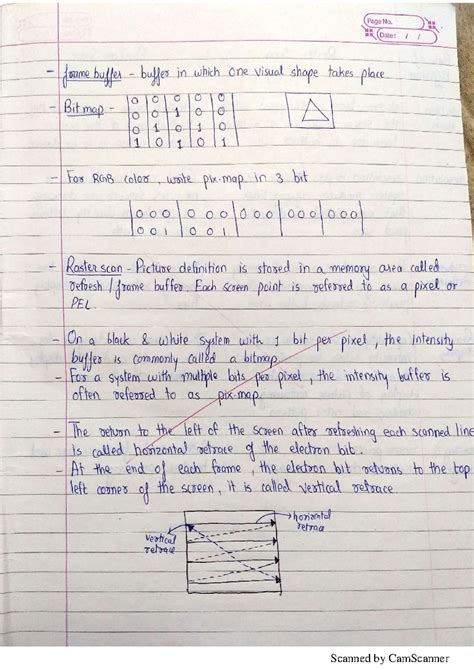 Page No.
Date: / /
- frame buffer - buffer in which one visual shape takes place
- Bit map -
0 0 0 0 0
0 0 1 0 0
0 1 0 1 0
1 0 1 0 1
- For RGB color, write pix-map in 3 bit
000 000 000 000 000
001 001
- Raster scan - Picture definition is stored in a memory area called
refresh / frame buffer. Each screen point is referred to as a pixel or
PEL.
- On a black & white system with 1 bit per pixel, the intensity
buffer is commonly called a bitmap.
- For a system with multiple bits per pixel, the intensity buffer is
often referred to as pix-map.
- The return to the left of the screen after refreshing each scanned line
is called horizontal retrace of the electron bit.
- At the end of each frame, the electron bit returns to the top
left corner of the screen, it is called vertical retrace.
horizontal
retrace
vertical
retrace
Scanned by CamScanner